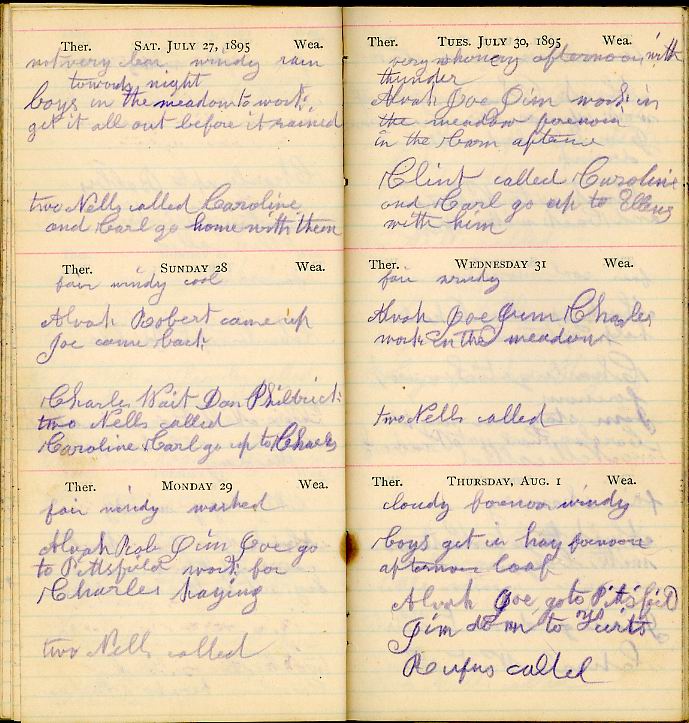 Ther. SAT. JULY 27, 1895 Wea.
not very windy rain
towards night
boys in the meadow to work
get it all out before it rained
two Nells called Caroline
and Carl go home with them
Ther. SUNDAY 28 Wea.
fair windy cool
Alvah Robert came up
Joe came back
Charles Wait Dan Philbrick
two Nells called
Caroline Carl go up to Charles
Ther. MONDAY 29 Wea.
fair windy washed
Alvah Rob Jim Joe go
to Pittsfield work for
Charles haying
two Nells called
Ther. TUES. JULY 30, 1895 Wea.
very showery afternoon with
thunder
Alvah Joe Jim work in
the meadow forenoon
in the barn
Clint called Caroline
and Carl go up to Ellens
with him
Ther. WEDNESDAY 31 Wea.
fair windy
Alvah Joe Jim Charles
work in the meadow
two Nells called
Ther. THURSDAY, AUG. 1 Wea.
cloudy forenoon windy
boys get in hay forenoon
afternoon loaf
Alvah Joe go to Pittsfield
Jim down to
Rufus called